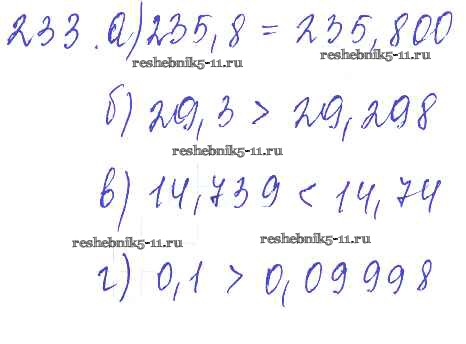 233. а) 235,8 = 235,800
reshebnik5-11.ru reshebnik5-11.ru
б) 29,3 > 29,298
reshebnik5-11.ru
в) 14,739 < 14,74
reshebnik5-11.ru reshebnik5-11.ru
г) 0,1 > 0,09998